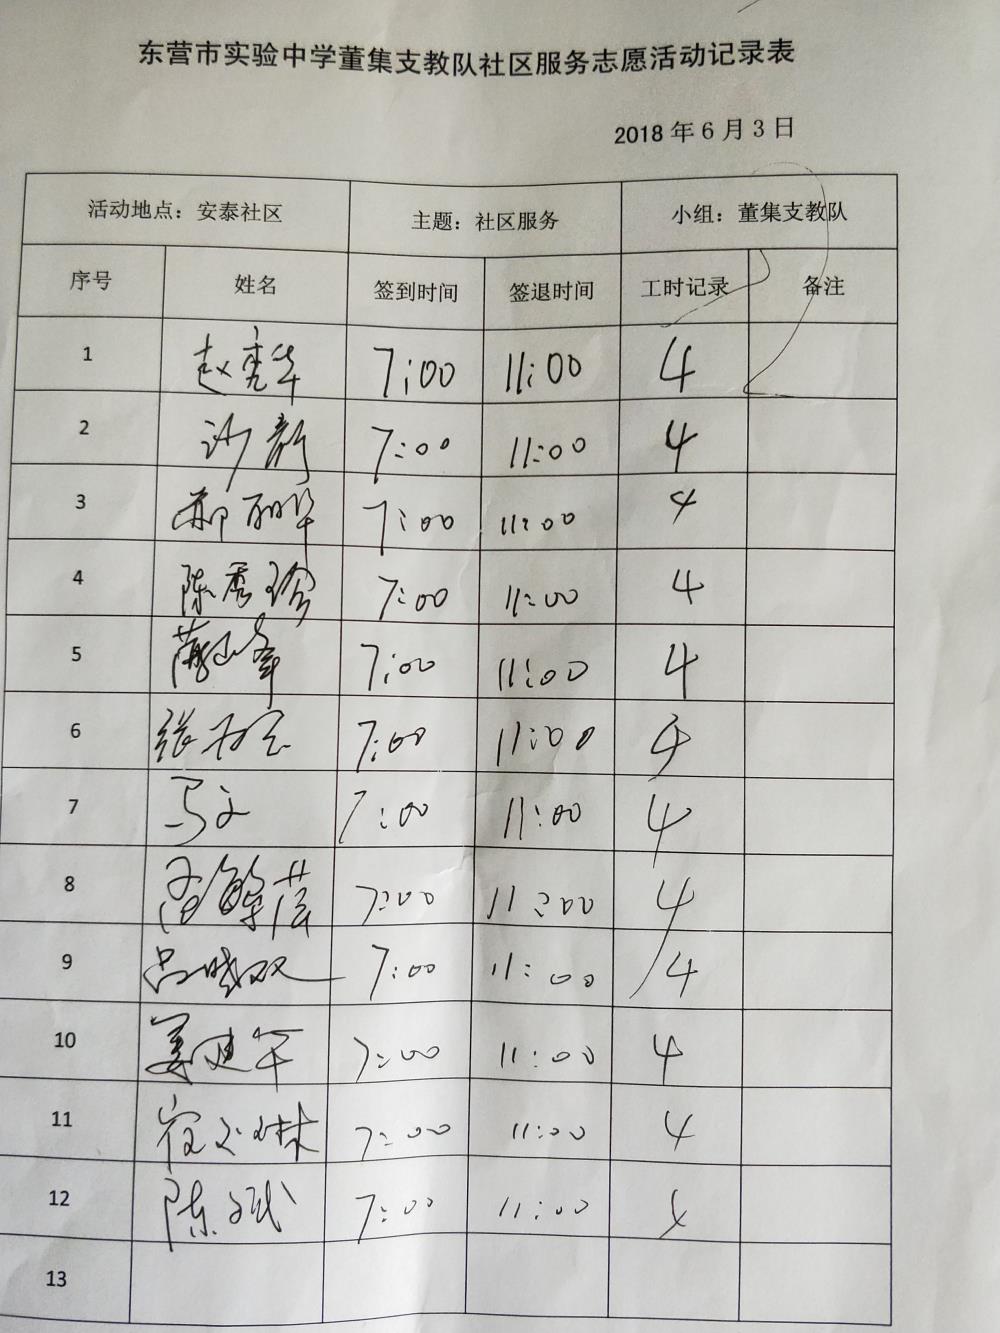 东营市实验中学董集支教队社区服务志愿活动记录表
2018 年 6 月 3 日
活动地点：安泰社区 主题：社区服务 小组：董集支教队
序号 姓名 签到时间 签退时间 工时记录 备注
1 赵亮华 7:00 11:00 4
2 7:00 11:00 4
3 郝丽华 7:00 11:00 4
4 陈秀珍 7:00 11:00 4
5 7:00 11:00 4
6 7:00 11:00 4
7 马文 7:00 11:00 4
8 7:00 11:00 4
9 吕晓双 7:00 11:00 4
10 姜建军 7:00 11:00 4
11 7:00 11:00 4
12 陈斌 7:00 11:00 4
13